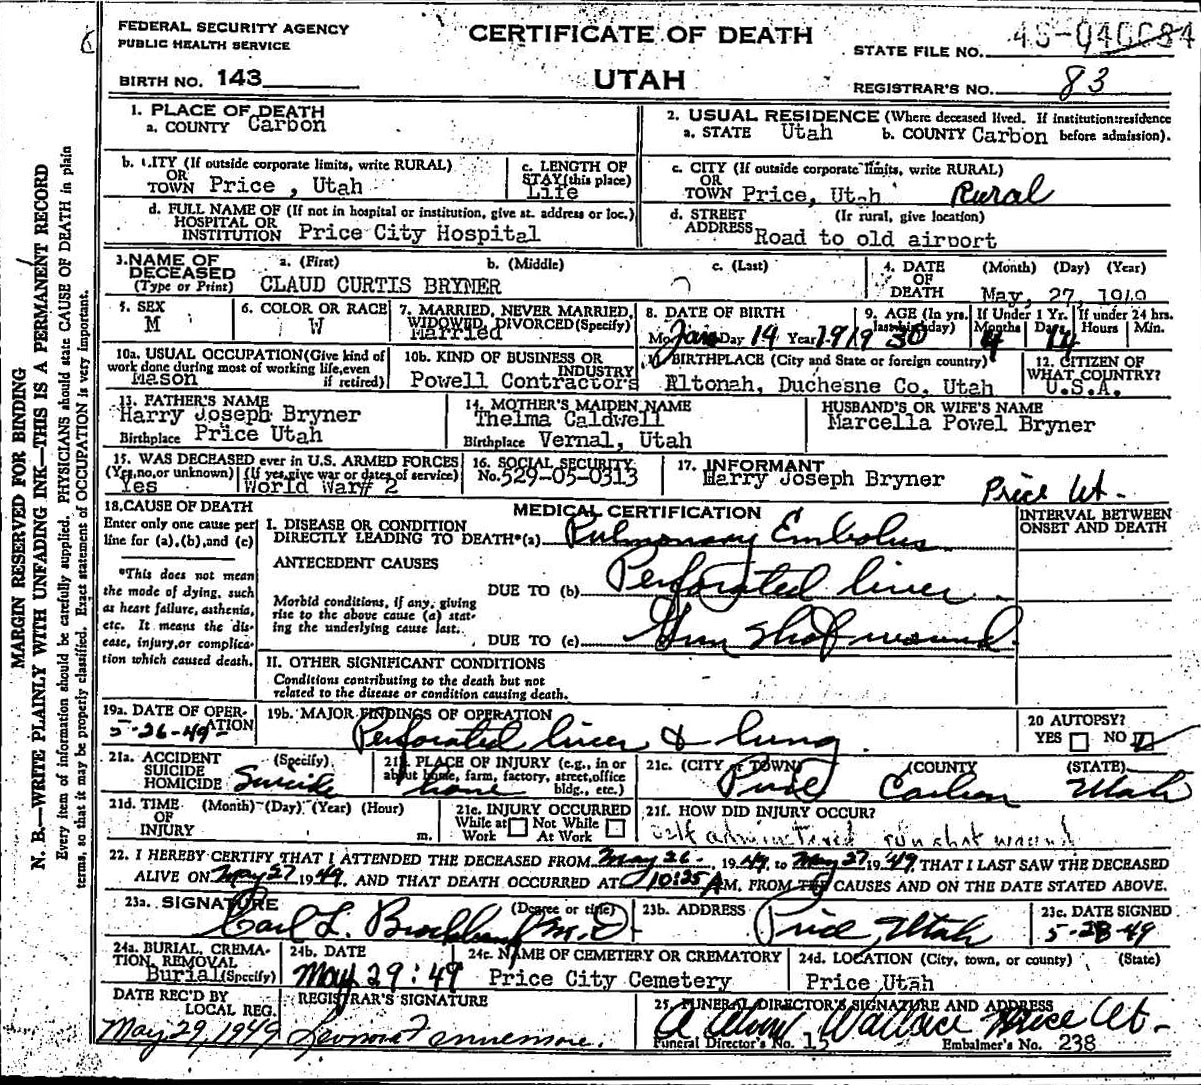 FEDERAL SECURITY AGENCY
PUBLIC HEALTH SERVICE
BIRTH NO. 143
CERTIFICATE OF DEATH
UTAH
STATE FILE NO.
REGISTRAR'S NO. 83
MARGIN RESERVED FOR BINDING
N. B.—WRITE PLAINLY WITH UNFADING INK—THIS IS A PERMANENT RECORD
Every item of information should be carefully supplied. PHYSICIANS should state CAUSE OF DEATH in plain
terms, so that it may be properly classified. Exact statement of OCCUPATION is very important.
1. PLACE OF DEATH
a. COUNTY Carbon
2. USUAL RESIDENCE (Where deceased lived. If institution:residence
a. STATE Utah b. COUNTY Carbon before admission).
b. CITY (If outside corporate limits, write RURAL)
OR
TOWN Price , Utah
c. LENGTH OF
STAY (this place)
Life
c. CITY (If outside corporate limits, write RURAL)
OR
TOWN Price, Utah Rural
d. FULL NAME OF (If not in hospital or institution, give st. address or loc.)
HOSPITAL OR
INSTITUTION Price City Hospital
d. STREET (If rural, give location)
ADDRESS Road to old airport
3. NAME OF DECEASED
(Type or Print)
a. (First) b. (Middle) c. (Last)
CLAUD CURTIS BRYNER
4. DATE OF DEATH (Month) (Day) (Year)
May, 27, 1949
5. SEX
M
6. COLOR OR RACE
W
7. MARRIED, NEVER MARRIED,
WIDOWED, DIVORCED (Specify)
Married
8. DATE OF BIRTH
Mo Jan Day 14 Year 1919
9. AGE (In yrs. last birthday) 30
If Under 1 Yr. Months 4 Days 14
If under 24 hrs. Hours Min.
10a. USUAL OCCUPATION (Give kind of
work done during most of working life, even
if retired)
Mason
10b. KIND OF BUSINESS OR
INDUSTRY
Powell Contractors
11. BIRTHPLACE (City and State or foreign country)
Altonah, Duchesne Co. Utah
12. CITIZEN OF
WHAT COUNTRY?
U.S.A.
13. FATHER'S NAME
Harry Joseph Bryner
Birthplace Price Utah
14. MOTHER'S MAIDEN NAME
Thelma Caldwell
Birthplace Vernal, Utah
HUSBAND'S OR WIFE'S NAME
Marcella Powel Bryner
15. WAS DECEASED ever in U.S. ARMED FORCES
(Yes, no, or unknown) (If yes, give war or dates of service)
Yes World War# 2
16. SOCIAL SECURITY
No. 529-05-0313
17. INFORMANT
Harry Joseph Bryner Price Ut.
18. CAUSE OF DEATH
Enter only one cause per
line for (a), (b), and (c)
*This does not mean
the mode of dying, such
as heart failure, asthenia,
etc. It means the dis-
ease, injury, or complica-
tion which caused death.
MEDICAL CERTIFICATION
INTERVAL BETWEEN
ONSET AND DEATH
I. DISEASE OR CONDITION
DIRECTLY LEADING TO DEATH*(a) Pulmonary Embolus
ANTECEDENT CAUSES
DUE TO (b) Perforated liver
Morbid conditions, if any, giving
rise to the above cause (a) stat-
ing the underlying cause last.
DUE TO (c) Gun shot wound
II. OTHER SIGNIFICANT CONDITIONS
Conditions contributing to the death but not
related to the disease or condition causing death.
19a. DATE OF OPERATION
5-26-49
19b. MAJOR FINDINGS OF OPERATION
Perforated liver & lung
20 AUTOPSY?
YES NO
21a. ACCIDENT (Specify)
SUICIDE
HOMICIDE Suicide
21b. PLACE OF INJURY (e.g., in or
about home, farm, factory, street, office
bldg., etc.)
home
21c. (CITY or TOWN) (COUNTY) (STATE)
Price Carbon Utah
21d. TIME OF INJURY (Month) (Day) (Year) (Hour)
m.
21e. INJURY OCCURRED
While at Work Not While At Work
21f. HOW DID INJURY OCCUR?
Self administered gun shot wound
22. I HEREBY CERTIFY THAT I ATTENDED THE DECEASED FROM May 26, 1949, to May 27 1949, THAT I LAST SAW THE DECEASED
ALIVE ON May 27 1949, AND THAT DEATH OCCURRED AT 10:25 AM, FROM THE CAUSES AND ON THE DATE STATED ABOVE.
23a. SIGNATURE (Degree or title)
Carl L. Brockbank M.D.
23b. ADDRESS
Price, Utah
23c. DATE SIGNED
5-28-49
24a. BURIAL, CREMA-
TION, REMOVAL
Burial (Specify)
24b. DATE
May 29 : 49
24c. NAME OF CEMETERY OR CREMATORY
Price City Cemetery
24d. LOCATION (City, town, or county) (State)
Price Utah
DATE REC'D BY
LOCAL REG.
May 29, 1949
REGISTRAR'S SIGNATURE
25. FUNERAL DIRECTOR'S SIGNATURE AND ADDRESS
Wallace Price Ut.
Funeral Director's No. 15 Embalmer's No. 238